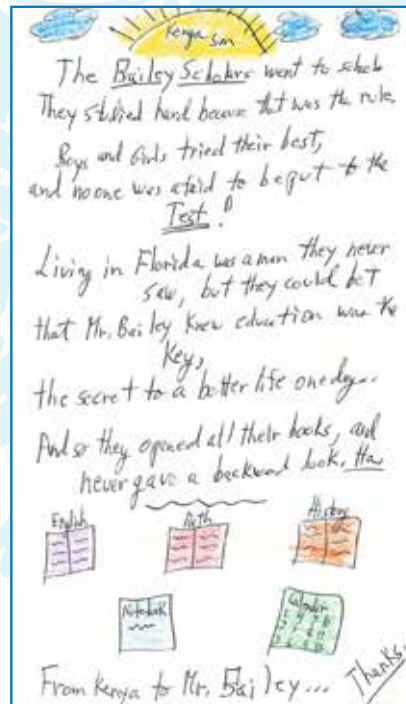 Kenya Sun
The Bailey Scholars went to schole
They studied hard because that was the rule.
Boys and Girls tried their best,
and no one was afraid to be put to the
Test!
Living in Florida was a man they never
saw, but they could bet
that Mr. Bailey knew education was the
Key,
the secret to a better life one day...
And so they opened all their books, and
never gave a backward look.
English
Math
History
Notebook
Calendar
From Kenya to Mr. Bailey...
Thanks.